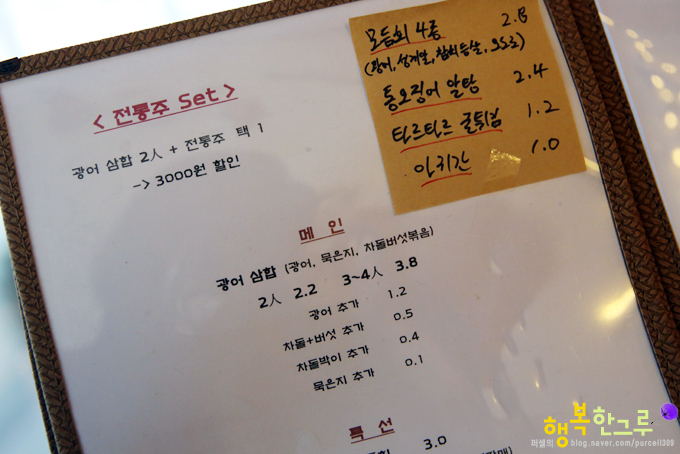 모듬회 4종 2.8
(광어, 성게알, 참치등살, 오도로)
통오징어 알탕 2.4
타르타르 굴튀김 1.2
아귀간 1.0
< 전통주 Set >
광어 삼합 2人 + 전통주 택 1
-> 3000원 할인
메 인
광어 삼합 (광어, 묵은지, 차돌버섯볶음)
2人 2.2 3~4人 3.8
광어 추가 1.2
차돌+버섯 추가 0.5
차돌박이 추가 0.4
묵은지 추가 0.1
특 선
3.0
행복한그루
퍼셀의 blog.naver.com/purcell300